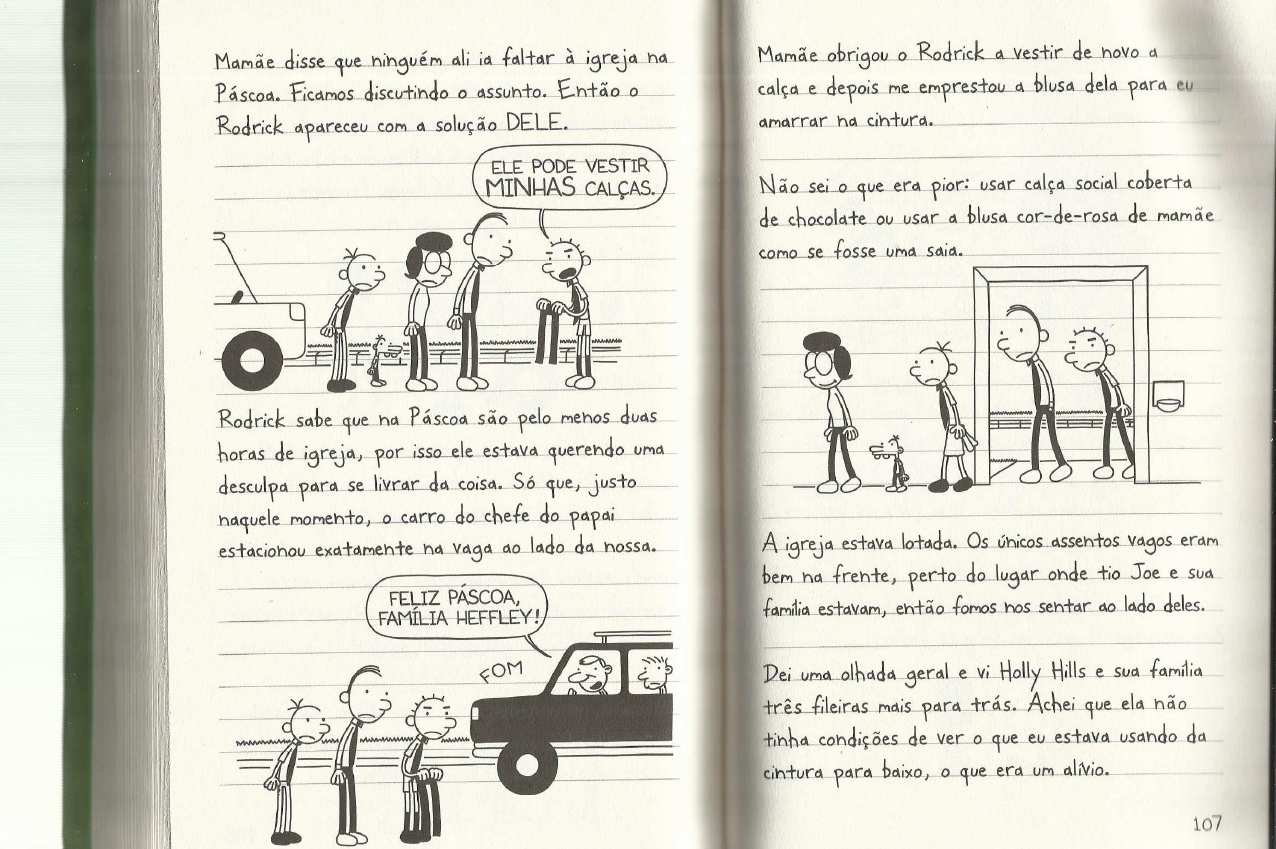 Mamãe disse que ninguém ali ia faltar à igreja na
Páscoa. Ficamos discutindo o assunto. Então o
Rodrick apareceu com a solução DELE.
ELE PODE VESTIR
MINHAS CALÇAS.
Rodrick sabe que na Páscoa são pelo menos duas
horas de igreja, por isso ele estava querendo uma
desculpa para se livrar da coisa. Só que, justo
naquele momento, o carro do chefe do papai
estacionou exatamente na vaga ao lado da nossa.
FELIZ PÁSCOA,
FAMÍLIA HEFFLEY!
FOM
Mamãe obrigou o Rodrick a vestir de novo a
calça e depois me emprestou a blusa dela para eu
amarrar na cintura.
Não sei o que era pior: usar calça social coberta
de chocolate ou usar a blusa cor-de-rosa de mamãe
como se fosse uma saia.
A igreja estava lotada. Os únicos assentos vagos eram
bem na frente, perto do lugar onde tio Joe e sua
família estavam, então fomos nos sentar ao lado deles.
Dei uma olhada geral e vi Holly Hills e sua família
três fileiras mais para trás. Achei que ela não
tinha condições de ver o que eu estava usando da
cintura para baixo, o que era um alívio.
107